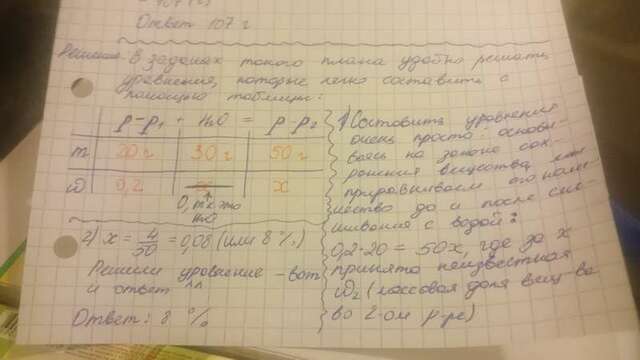 Ответ 107 г
Решение. В задачах такого плана удобно решать
уравнения, которые легко составить с
помощью таблицы:
р-р₁ + H₂O = р-р₂
m 20 г 30 г 50 г
ω 0,2 x
0, т.к это
H₂O
2) x = 4/50 = 0,08 (или 8%)
Решили уравнение - вот
и ответ ^^
Ответ: 8 %
1) Составить уравнение
очень просто: основы-
ваясь на законе сох-
ранения вещества, мы
приравниваем его коли-
чество до и после сме-
шивания с водой:
0,2·20 = 50x, где за x
принята неизвестная
ω₂ (массовая доля вещ-ва
во 2-ом р-ре)